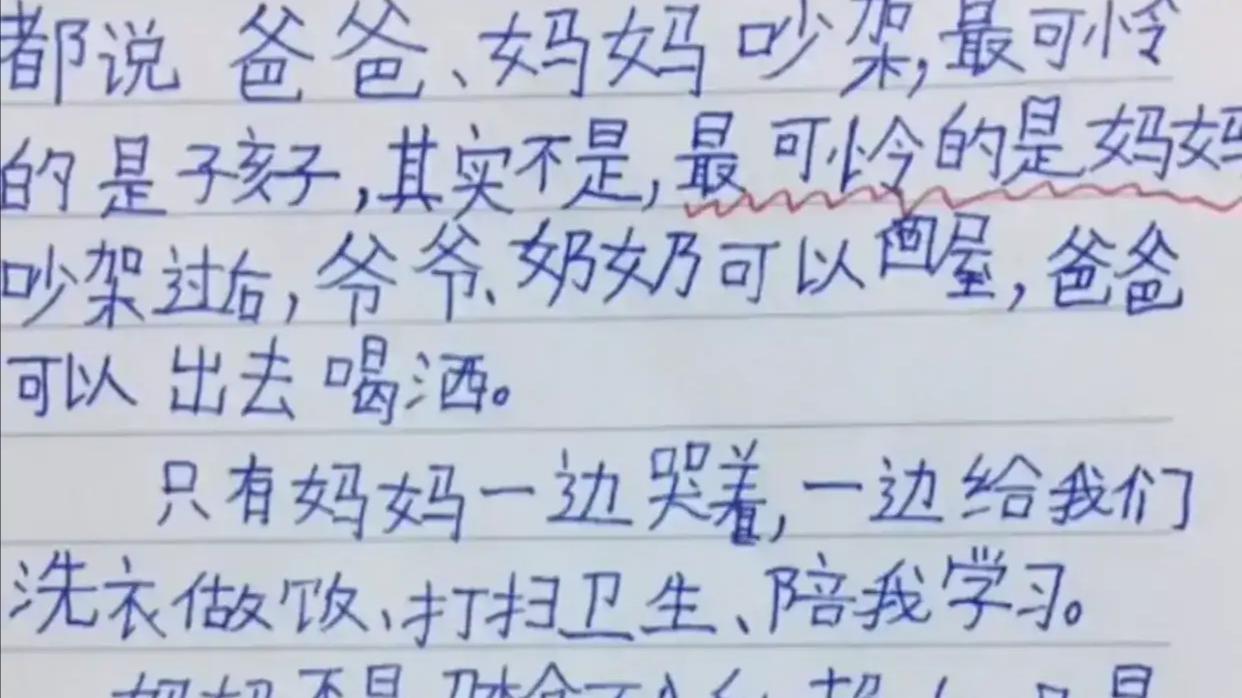 都说爸爸、妈妈吵架,最可怜
的是孩子,其实不是,最可怜的是妈妈
吵架过后,爷爷、奶奶可以回屋,爸爸
可以出去喝洒。
只有妈妈一边哭着,一边给我们
洗衣做饭、打扫卫生、陪我学习。
妈妈不是